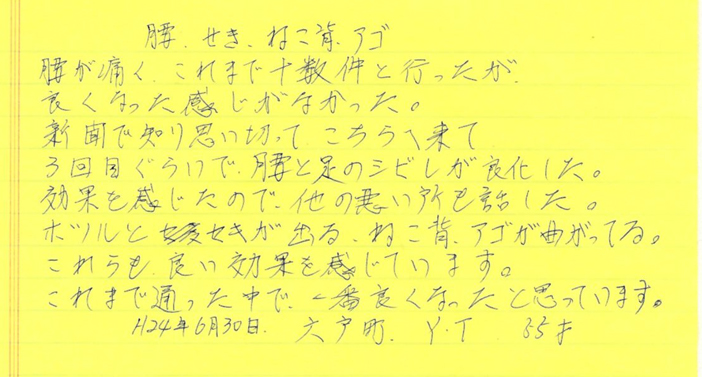 腰、せき、ねこ背、アゴ
腰が痛く、これまで十数件と行ったが、
良くなった感じがなかった。
新聞で知り思い切って、こちらへ来て
3回目ぐらいで、腰と足のシビレが良化した。
効果を感じたので、他の悪い所も話した。
ホツルと セキが出る、ねこ背、アゴが曲がってる。
これらも、良い効果を感じています。
これまで通った中で、一番良くなったと思っています。
H24年6月30日. 六戸町. Y.T 35才